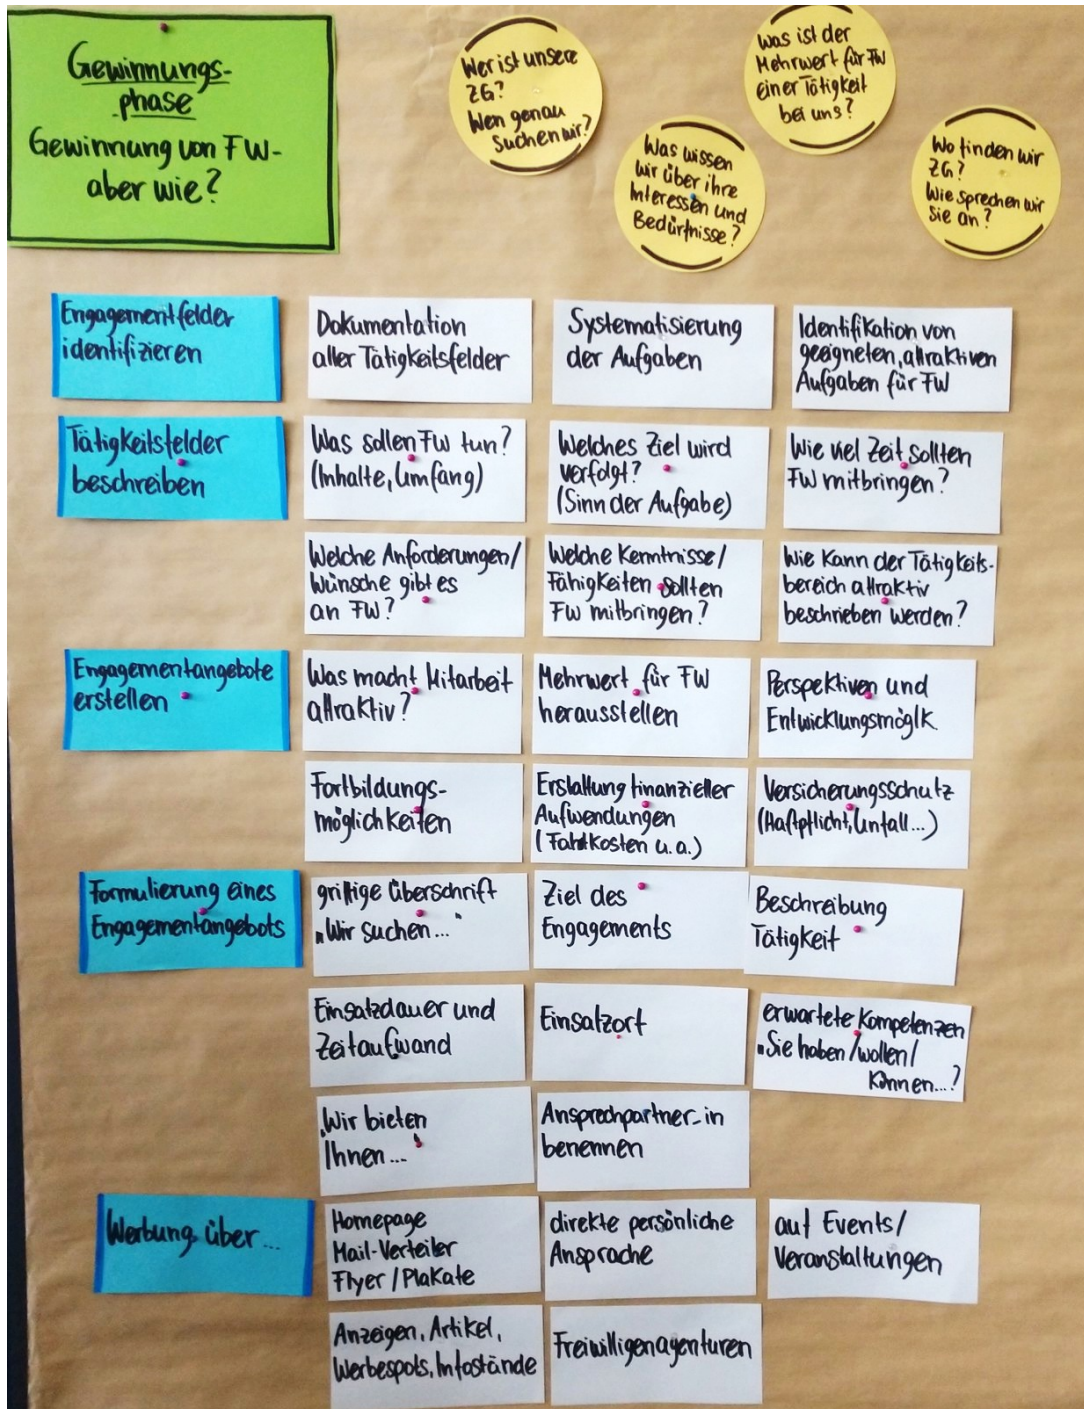 Gewinnungs-
phase
Gewinnung von FW-
aber wie?
Wer ist unsere
ZG?
Wen genau
suchen wir?
Was wissen
wir über ihre
Interessen und
Bedürfnisse?
Was ist der
Mehrwert für FW
einer Tätigkeit
bei uns?
Wo finden wir
ZG?
Wie sprechen wir
Sie an?
Engagementfelder
identifizieren
Dokumentation
aller Tätigkeitsfelder
Systematisierung
der Aufgaben
Identifikation von
geeigneten, attraktiven
Aufgaben für FW
Tätigkeitsfelder
beschreiben
Was sollen FW tun?
(Inhalte, Umfang)
Welches Ziel wird
verfolgt?
(Sinn der Aufgabe)
Wie viel Zeit sollten
FW mitbringen?
Welche Anforderungen/
Wünsche gibt es
an FW?
Welche Kenntnisse/
Fähigkeiten sollten
FW mitbringen?
Wie kann der Tätigkeits-
bereich attraktiv
beschrieben werden?
Engagementangebote
erstellen
Was macht Mitarbeit
attraktiv?
Mehrwert für FW
herausstellen
Perspektiven und
Entwicklungsmöglk.
Fortbildungs-
möglichkeiten
Erstattung finanzieller
Aufwendungen
(Fahrtkosten u.a.)
Versicherungsschutz
(Haftpflicht, Unfall...)
Formulierung eines
Engagementangebots
griffige Überschrift
„Wir suchen..."
Ziel des
Engagements
Beschreibung
Tätigkeit
Einsatzdauer und
Zeitaufwand
Einsatzort
erwartete Kompetenzen
„Sie haben/wollen/
können...?
„Wir bieten
Ihnen..."
Ansprechpartner_in
benennen
Werbung über...
Homepage
Mail-Verteiler
Flyer/Plakate
direkte persönliche
Ansprache
auf Events/
Veranstaltungen
Anzeigen, Artikel,
Werbespots, Infostände
Freiwilligenagenturen